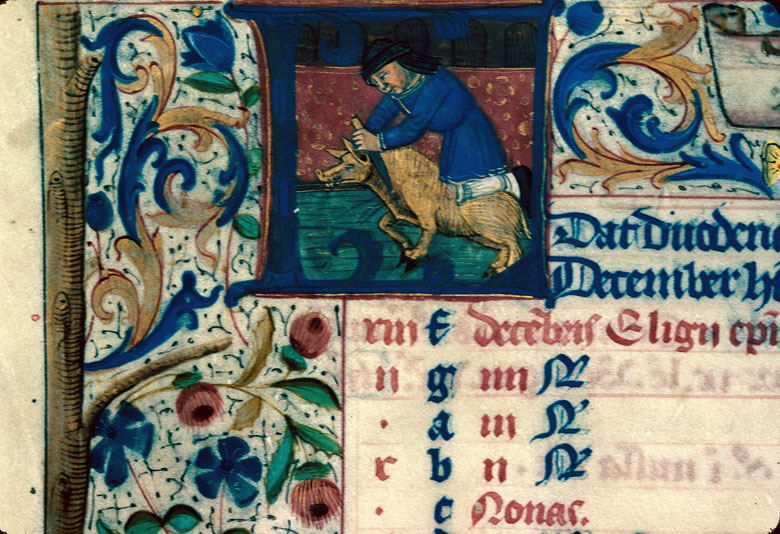 Dat duoden
December h
xiii f decēbris Eligii epi
ii g iiii N
· a iii N
x b ii N
· c Nonas.